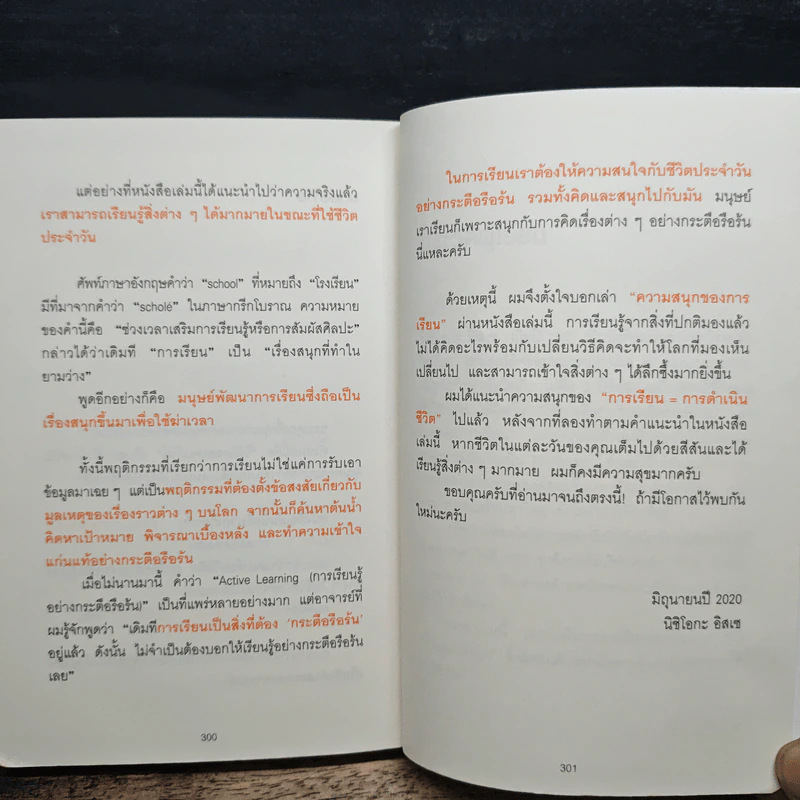 แต่อย่างที่หนังสือเล่มนี้ได้แนะนำไปว่าความจริงแล้ว
เราสามารถเรียนรู้สิ่งต่าง ๆ ได้มากมายในขณะที่ใช้ชีวิต
ประจำวัน
ศัพท์ภาษาอังกฤษคำว่า “school” ที่หมายถึง “โรงเรียน”
มีที่มาจากคำว่า “scholé” ในภาษากรีกโบราณ ความหมาย
ของคำนี้คือ “ช่วงเวลาเสริมการเรียนรู้หรือการสัมผัสศิลปะ”
กล่าวได้ว่าเดิมที “การเรียน” เป็น “เรื่องสนุกที่ทำใน
ยามว่าง”
พูดอีกอย่างก็คือ มนุษย์พัฒนาการเรียนซึ่งถือเป็น
เรื่องสนุกขึ้นมาเพื่อใช้ฆ่าเวลา
ทั้งนี้พฤติกรรมที่เรียกว่าการเรียนไม่ใช่แค่การรับเอา
ข้อมูลมาเฉย ๆ แต่เป็นพฤติกรรมที่ต้องตั้งข้อสงสัยเกี่ยวกับ
มูลเหตุของเรื่องราวต่าง ๆ บนโลก จากนั้นก็ค้นหาต้นน้ำ
คิดหาเป้าหมาย พิจารณาเบื้องหลัง และทำความเข้าใจ
แก่นแท้อย่างกระตือรือร้น
เมื่อไม่นานมานี้ คำว่า “Active Learning (การเรียนรู้
อย่างกระตือรือร้น)” เป็นที่แพร่หลายอย่างมาก แต่อาจารย์ที่
ผมรู้จักพูดว่า “เดิมทีการเรียนเป็นสิ่งที่ต้อง ‘กระตือรือร้น’
อยู่แล้ว ดังนั้น ไม่จำเป็นต้องบอกให้เรียนรู้อย่างกระตือรือร้น
เลย”
300
ในการเรียนเราต้องให้ความสนใจกับชีวิตประจำวัน
อย่างกระตือรือร้น รวมทั้งคิดและสนุกไปกับมัน มนุษย์
เราเรียนก็เพราะสนุกกับการคิดเรื่องต่าง ๆ อย่างกระตือรือร้น
นี่แหละครับ
ด้วยเหตุนี้ ผมจึงตั้งใจบอกเล่า “ความสนุกของการ
เรียน” ผ่านหนังสือเล่มนี้ การเรียนรู้จากสิ่งที่ปกติมองแล้ว
ไม่ได้คิดอะไรพร้อมกับเปลี่ยนวิธีคิดจะทำให้โลกที่มองเห็น
เปลี่ยนไป และสามารถเข้าใจสิ่งต่าง ๆ ได้ลึกซึ้งมากยิ่งขึ้น
ผมได้แนะนำความสนุกของ “การเรียน = การดำเนิน
ชีวิต” ไปแล้ว หลังจากที่ลองทำตามคำแนะนำในหนังสือ
เล่มนี้ หากชีวิตในแต่ละวันของคุณเต็มไปด้วยสีสันและได้
เรียนรู้สิ่งต่าง ๆ มากมาย ผมก็คงมีความสุขมากครับ
ขอบคุณครับที่อ่านมาจนถึงตรงนี้! ถ้ามีโอกาสไว้พบกัน
ใหม่นะครับ
มิถุนายนปี 2020
นิชิโอกะ อิสเซ
301